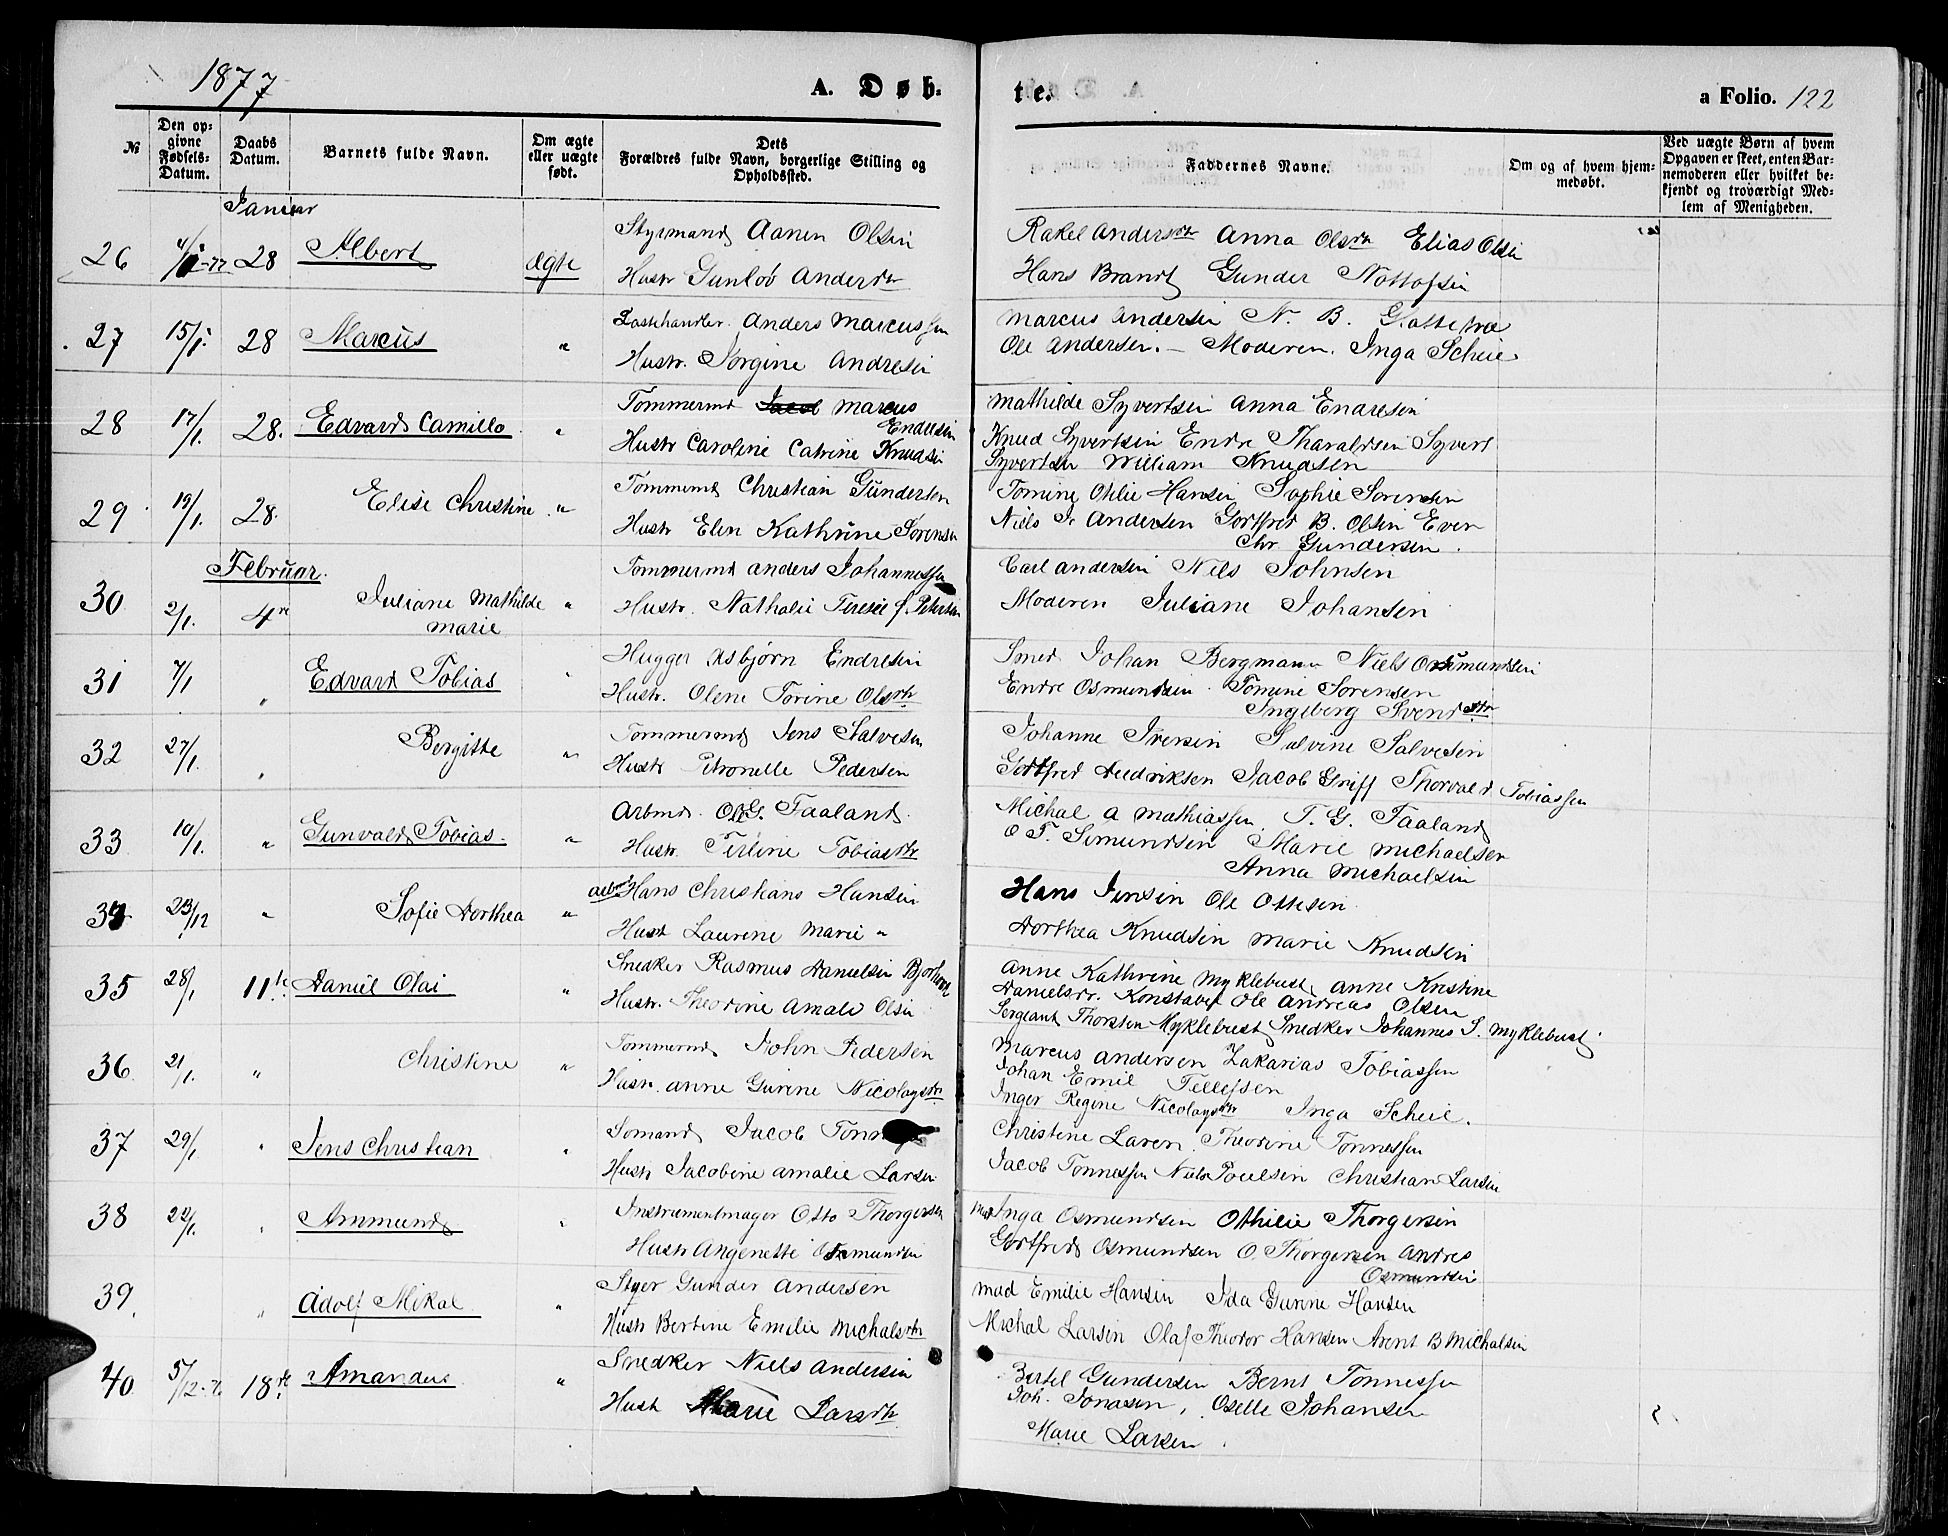 1877
A. Døb-
te.
a Folio. 122
№
Den op-
givne
Fødsels-
Datum.
Daabs
Datum.
Barnets fulde Navn.
Om ægte
eller uægte
født.
Dets
Forældres fulde Navn, borgerlige Stilling og
Opholdssted.
Faddernes Navne.
Om og af hvem hjem-
medøbt.
Ved uægte Børn af hvem
Opgaven er skeet, enten Bar-
nemoderen eller hvilket be-
kjendt og troværdigt Med-
lem af Menigheden.
Januar
26 28 Albert ægte
Styrmand Aanen Olsen
Hustr Gunloö Andersdtr
Rakel Andersdtr Anna Olsdtr Elias Olsen
Hans Brandt Gunder Nottofsen
27 15/1. 28 Marcus "
Anders Marcussen
Hustr. Jörgine Andresen
Marcus Andersen N. B.
Ole Andersen. — Moderen. Inga Scheie
28 17/1. 28. Edvard Camillo "
Tömmermd Jacob Marcus
Endresen
Hustr Caroline Catrine Knudsen
Mathilde Syvertsen Anna Endresen
Knud Syvertsen Endre Tharaldsen Syvert
Syvertsen William Knudsen
29 19/1. 28. Elise Christine "
Tömmermd Christian Gundersen
Hustr Elen Kathrine Sørensen
Tomine Otilie Hansen Sophie Sorensen
Niels Andersen Gotfred B. Olsen Even
Chr. Gundersen.
Februar.
30 2/1. 4de Juliane Mathilde "
Marie
Tömmermd Anders Johannessen
Hustr. Nathalie Teresie f. Petersen
Carl Andersen Nils Johnsen
Moderen Juliane Johansen
31 7/1 " Edvard Tobias "
Hugger Asbjørn Endresen
Hustr. Olene Torine Olsdtr
Smed Johan Bergmann Niels Osmundsen
Endre Osmundsen. Tomine Sorensen
Ingeborg Svendsdtr
32 27/1. " Bergitte "
Tömmermd Jens Salvesen
Hustr Petronelle Pedersen
Johanne Iversen Salvine Salvesen
Gotfred Hedriksen Jacob Greiff Thorvald Tobiassen
33 10/1. " Gunvald Tobias. "
Arbmd. G. Faaland.
Hustr. Tobiasdtr
Michal A Mathiassen T. G. Faaland
O T. Simundsen Marie Michaelsen
Anna Michaelsen
34 23/12 " Sofie Dorthea "
Hans Christians Hansen
Hustr Laurene Marie "
Hans Jensen Ole Ottesen
Dorthea Knudsen Marie Knudsen
35 28/1 11te Daniel Olai "
Snedker Rasmus Danielsen
Hustr. Theodrine Amalie Olsen
Anne Kathrine Myklebust Anne Kristine
Danielsdr. Konstabel Ole Andreas Olsen
Sergeant Thorsten Myklebust Snedker Johannes S. Myklebust
36. 21/1. " Christine "
Tömmermd John Pedersen
Hustr. Anne Gurine Nicolaysdtr
Marcus Andersen Zakarias Tobiassen
Johan Emil Tellefsen
Inger Regine Nicolaysdtr Inga Scheie.
37 29/1 " Jens Christian "
Sömand Jacob
Hustr Jacobine Amalie Larsen
Christine Laren. Theodrine Tönnessen
Jacob Tönnessen Niels Poulsen Christian Larsen
38 22/1. " Ammund "
Instrumentmager Otto Thorgersen
Hustr Angenette Osmundsen
Mad Inga Osmundsen Othilie Thorgersen
Gotfred Osmundsen O. Thorgersen Andres
Osmundsen
39. " Adolf Mikal "
Styer Gunder Andersen
Hustr Bertine Emilie Michalsdtr
Mad Emilie Hansen Ida Gurine Hansen
Michal Larsen Olaf Theodor Hansen Arent B Michalsen
40 18de Amandus "
Snedker Niels Andersen
Hustr Marie Larsdtr
Bertel Gundersen Bernt Tonnessen
Joh. Jonasen, Oselle Johansen
Marie Larsen.